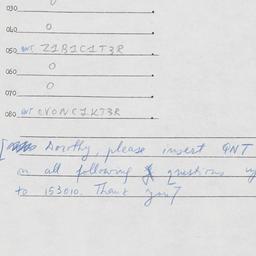 030 0
040 0
050 QNT Z1B1C1T3R
060 0
070 0
080 QNT CVONC1KT3R
[Dorothy, please insert QNT
in all following questions up
to 153010. Thank you]